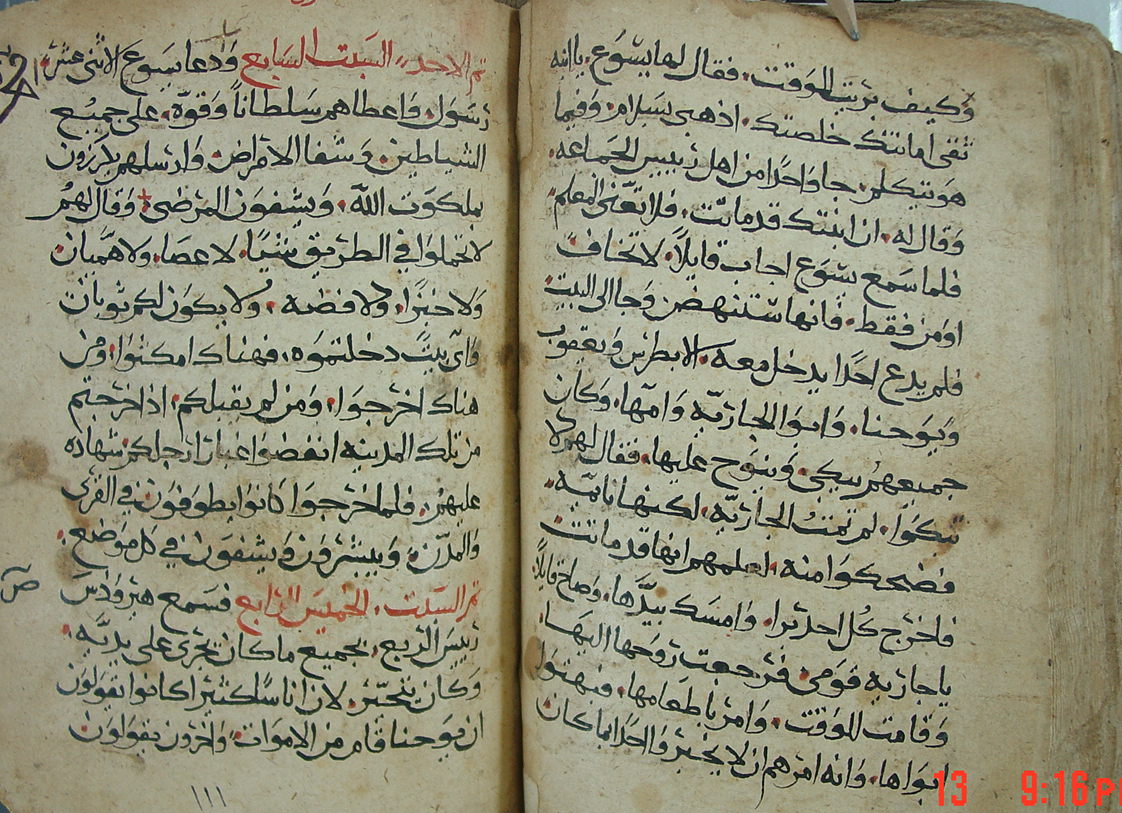 وكيف بريت للوقت. فقال لها يسوع. يا ابنه
ثقي امانتك خلصتك. اذهبي بسلام. وفيما
هو يتكلم. جا واحدا من اهل رييس الجماعه.
وقال له. ان ابنتك قد ماتت. فلا تعنى المعلم
فلما سمع يسوع اجاب قايلا. لا تخاف
اومن فقط. فانها ستنهض. وجا الى البيت
فلم يدع احدا يدخل معه. الا بطرس ويعقوب
ويوحنا. وابوا الجاريه وامها. وكان
جميعهم يبكي وينوح عليها. فقال لهم لا
تبكوا. لم تمت الجاريه. لكنها نايمه.
فضحكوا منه. لعلمهم انها قد ماتت
فاخرج كل احد برا. وامسك بيدها. وصاح قايلا.
يا جاريه قومي. فرجعت روحها اليها.
وقامت للوقت. وامر باطعامها. فبهتوا
ابواها. وانه امرهم ان لا يخبروا احدا بما كان
تم الاحد. السبت السابع ودعا يسوع الاثنى عشر
رسول. واعطاهم سلطانا وقوه. على جميع
الشياطين. وشفا الامراض. وارسلهم يكرزون
بملكوت الله. ويشفون المرضى. وقال لهم
لا تحملوا في الطريق شيا. لا عصا. ولا هميان
ولا خبزا. ولا فضه. ولا يكون لكم ثوبان
واي بيت دخلتموه. فهناك امكثوا. ومن
هناك اخرجوا. ومن لم يقبلكم. اذا خرجتم
من تلك المدينه انفضوا غبار ارجلكم شهاده
عليهم. فلما خرجوا كانوا يطوفون في القرى
والمدن. ويبشرون ويشفون في كل موضع.
تم السبت. الخميس الرابع فسمع هيرودس
رييس الربع. بجميع ما كان يجرى على يديه.
وكان يتحير. لان اناسا كثيرا كانوا يقولون
ان يوحنا قام من الاموات. واخرون يقولون
١١١
13 9:16 P